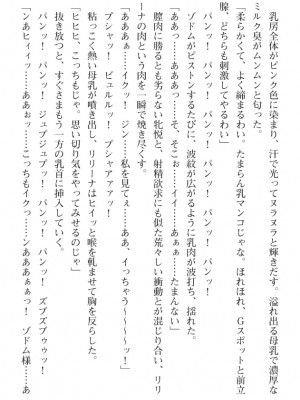 乳房全体がピンク色に染まり、汗で光ってヌラヌラと輝きだす。溢れ出る母乳で濃厚な
ミルク臭がムンムンと匂った。
「柔らかくて、よく締まるわい。たまらん乳マンコじゃな。ほれほれ、Gスポットと前立
腺、どちらも刺激してやるわい」
パンッ！　パンッ！　パンッ！
「ああっ……ああああっ……そ、そこぉ……イイ……あぁぁ……たまんない」
ゾドムがピストンするたびに、波紋が広がるように乳肉が波打ち、揺れた。
膣肉に勝るとも劣らない牝悦と、射精欲求にも似た荒々しい衝動とが混じり合い、リリ
ーナの肉という肉を一瞬で焼き尽くす。
「ああ……あああ……イクッ！　ジン……私を見てぇ……ああ、イっちゃう〜〜〜〜ッ！」
ブシャッ！　ビュルルッ！　ブシャアアァッ！
粘っこく熱い母乳が噴き出し、リリーナはヒイッと喉を軋ませて胸を反らした。
「ヒヒヒ、こっちもじゃ。思い切り気をやってみせるのじゃ」
抜き放つと、すぐさまもう一方の乳首に挿入していく。
パンッ！　パンッ！　ジュブジュブッ！　パンッ！　ズブズブゥゥッ！
「ンあヒィィッ……ああぉっ……こっちもイクっ……ンああぁぁぁっ！　ゾドム様……ンあ